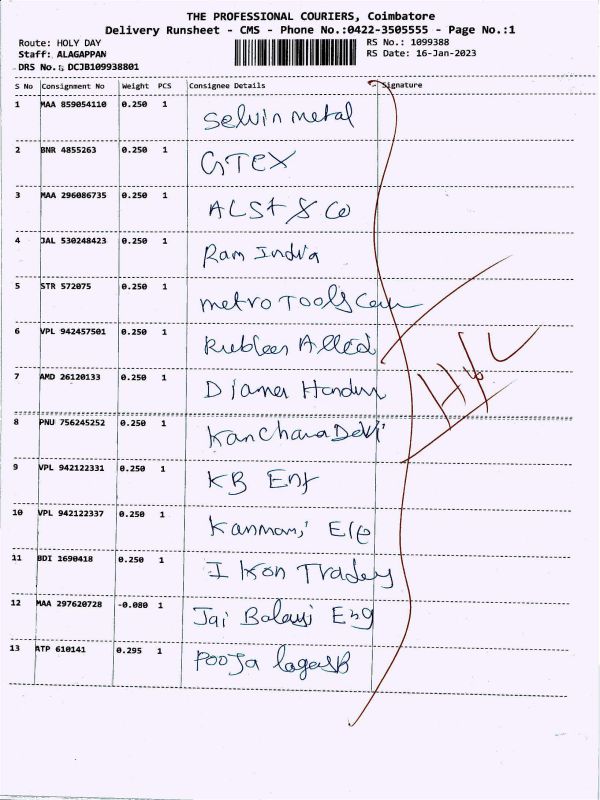 THE PROFESSIONAL COURIERS, Coimbatore
Delivery Runsheet - CMS - Phone No.:0422-3505555 - Page No.:1
Route: HOLY DAY RS No.: 1099388
Staff: ALAGAPPAN RS Date: 16-Jan-2023
DRS No.: DCJB109938801
S No Consignment No Weight PCS Consignee Details Signature
1 MAA 859054110 0.250 1 Selvin metal
2 BNR 4855263 0.250 1 GTEX
3 MAA 296086735 0.250 1 ALST & Co
4 JAL 530248423 0.250 1 Ram India
5 STR 572075 0.250 1 metro Tools
6 VPL 942457501 0.250 1 Allied
7 AMD 26120133 0.250 1
8 PNU 756245252 0.250 1 Kanchana Devi
H/L
9 VPL 942122331 0.250 1 KB Ent
10 VPL 942122337 0.250 1 Kanmani Ele
11 BDI 1690418 0.250 1 I Kon Tradey
12 MAA 297620728 -0.080 1 Jai Balaji Eng
13 ATP 610141 0.295 1 Pooja